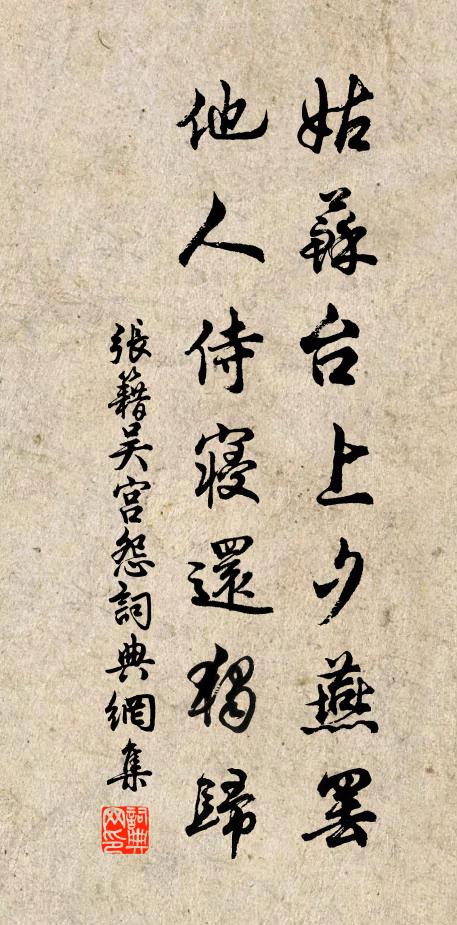 姑蘇台上夕燕罢
他人侍寝還獨歸
張籍吴宫怨詞典網集
詞典網印